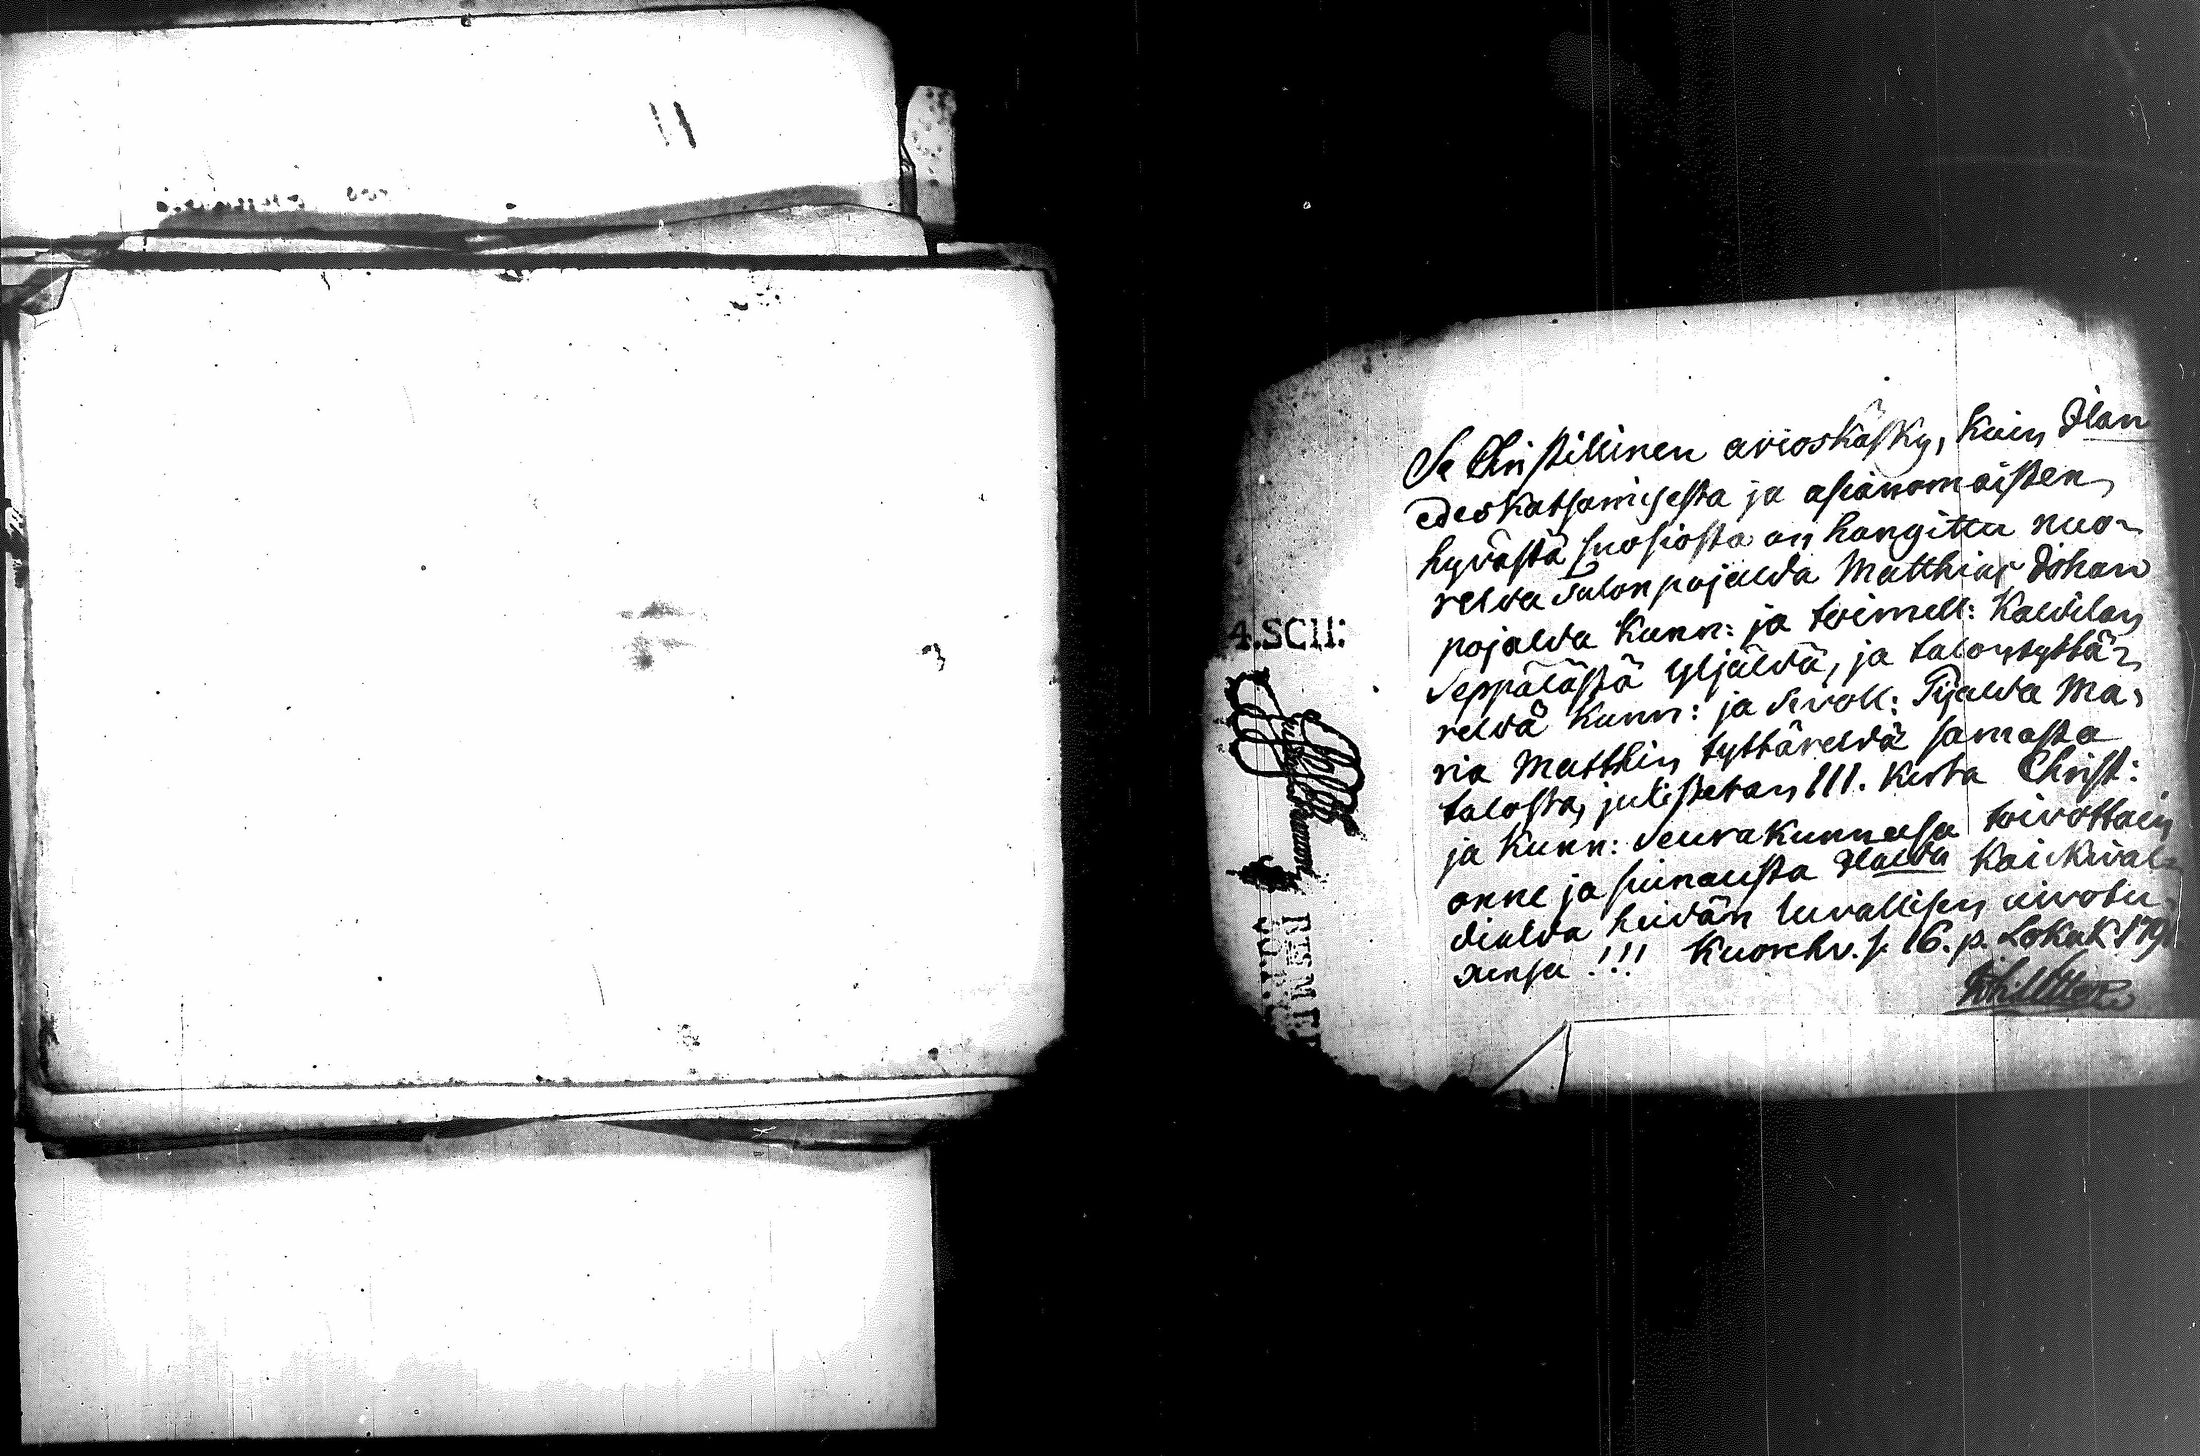 Se Christillinen avioskäsky, kuin Ylan
edeskatsamisesta ja asianomaisten
hyvästä suosiosta on hangittu nuo-
relda Talonpojalda Matthias Johan
pojalda Kunn: ja toimell: Kaldilan
Seppälästä Yljäldä, ja talontyttä-
reldä Kunn: ja Sivoll: Pijalda Ma-
ria Matthin tyttäreldä samasta
talosta, julistetan III. kerta Christ:
ja Kunn: Seurakunnasa toivottain
onne ja siunausta Ylälda Kaickival-
dialda heidän luvallisen aivotu-
xensa !!! Kuorehv. s. 16. p. Lokak 179
4.SCH: